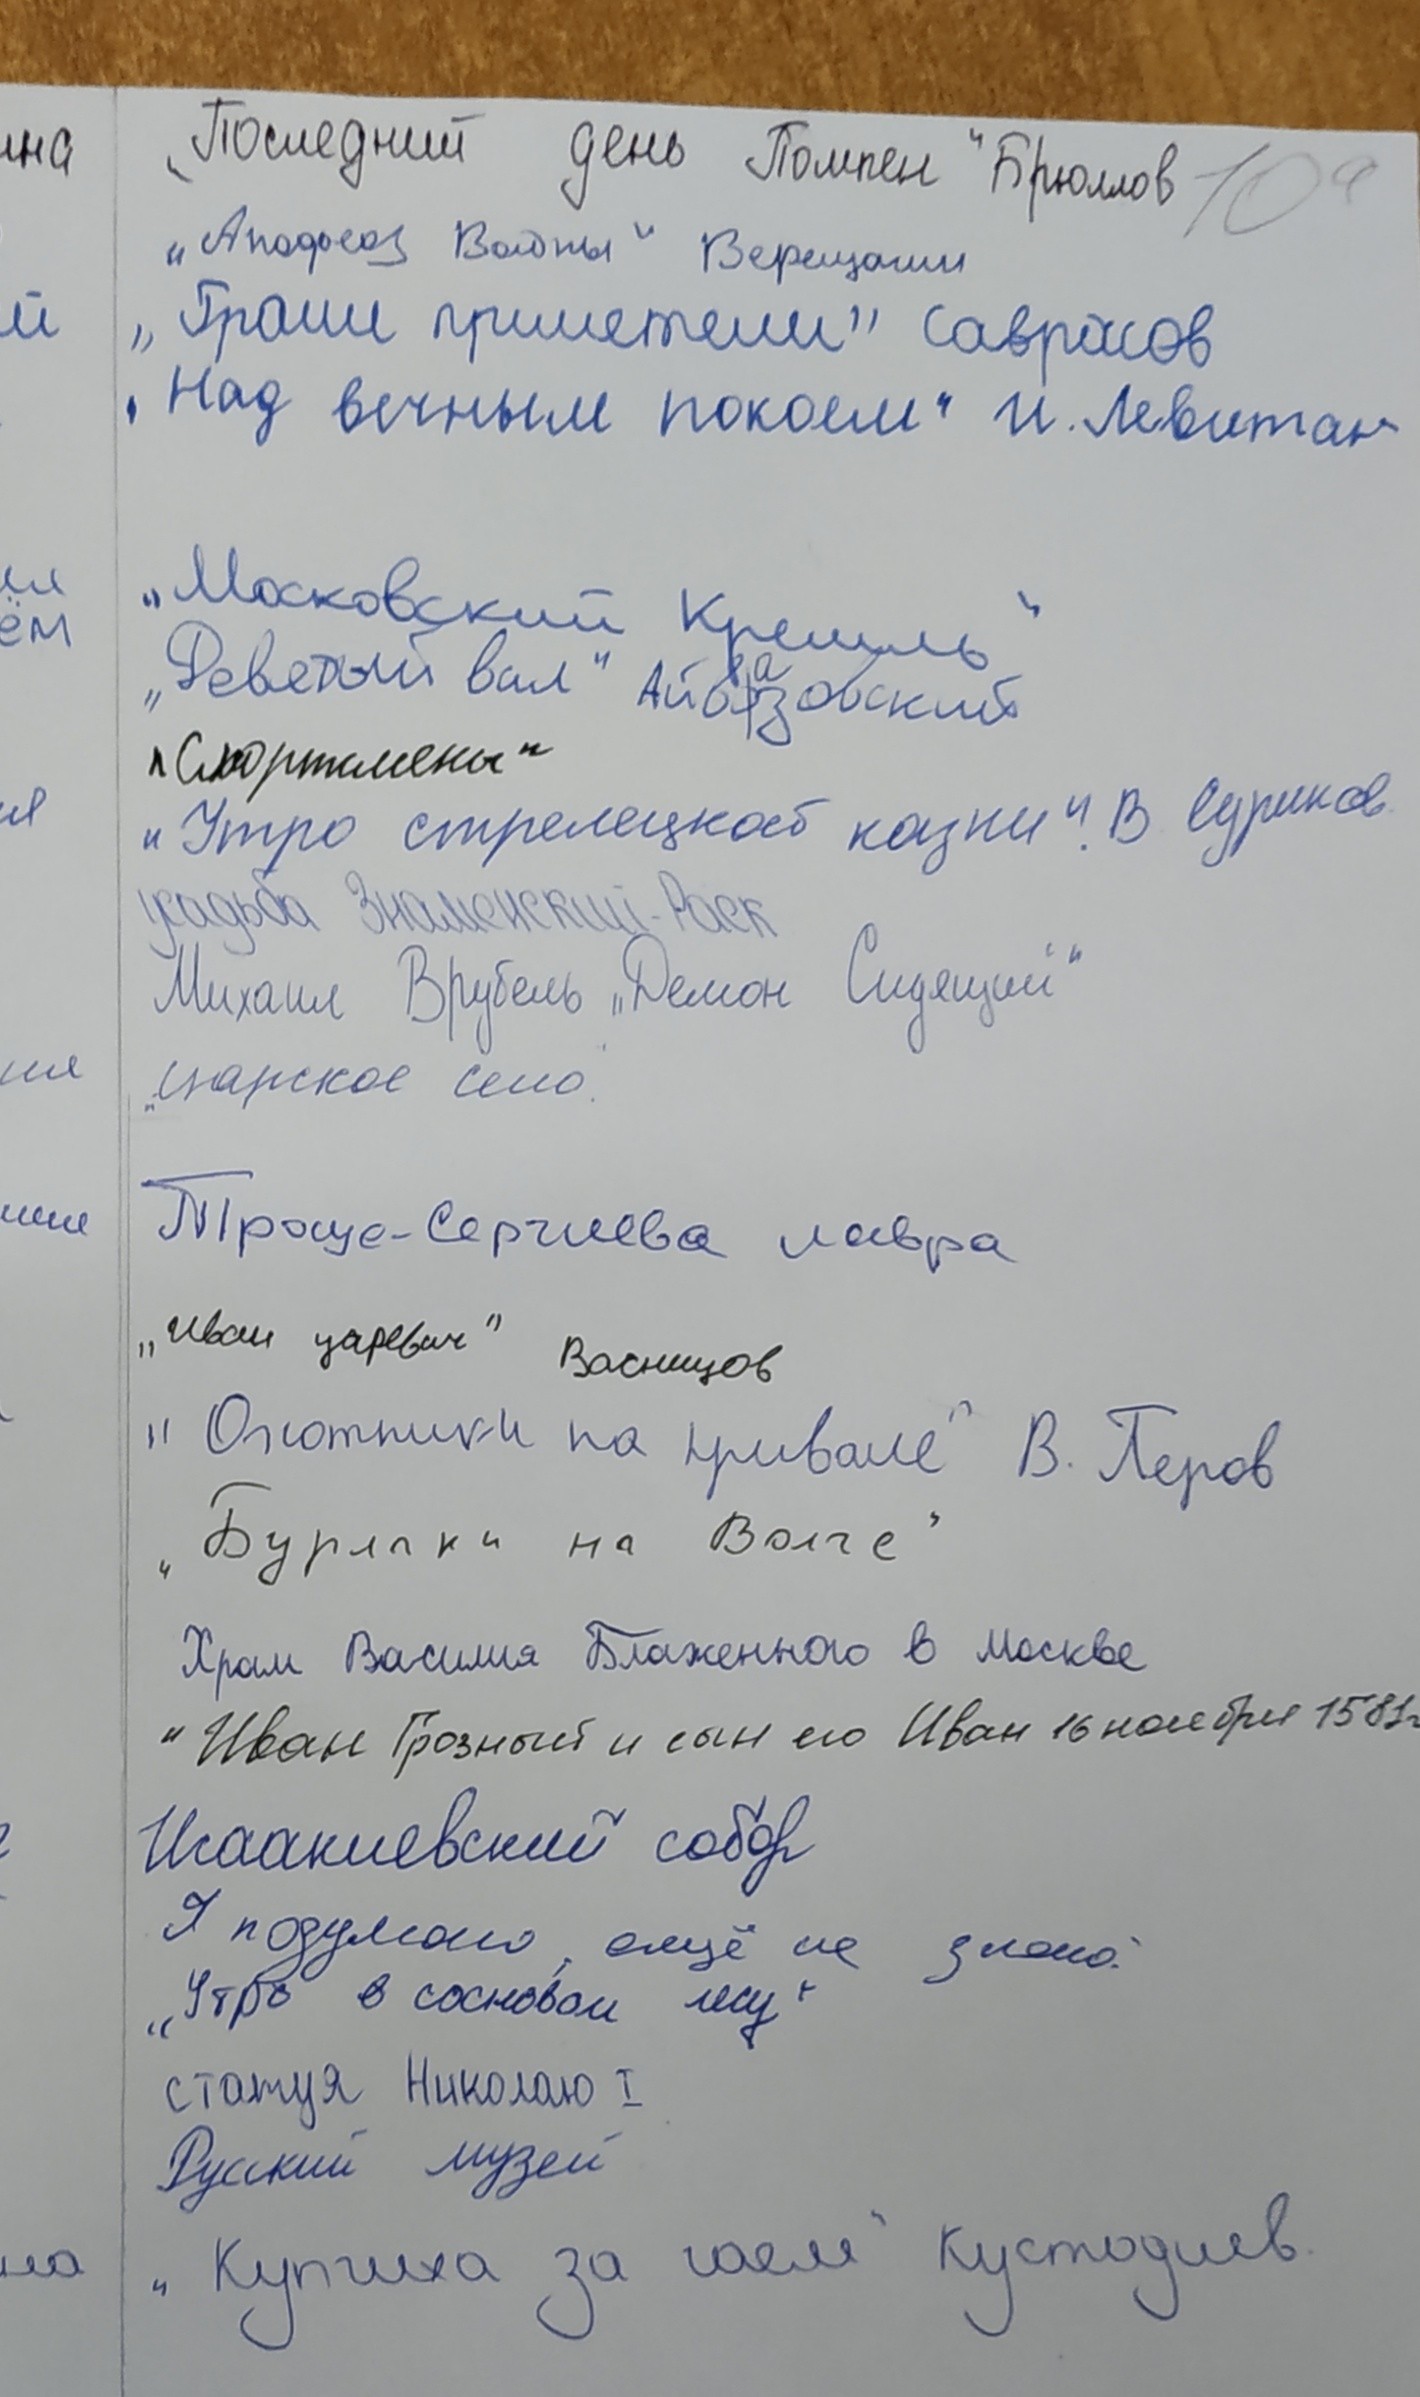 ина
„Последний день Помпеи" Брюллов 10а
„Апофеоз Войны" Верещагин
ий
„Грачи прилетели" Саврасов
„Над вечным покоем" И. Левитан
„Московский Кремль"
ём
„Деветый вал" Айвазовский
„Спортсмены"
„Утро стрелецкой казни". В Суриков.
ия
усадьба Знаменский-Раек
Михаил Врубель „Демон Сидящий"
„царское село".
ния
Троице-Сергиева лавра
„Иван царевич" Васнецов
„Охотники на привале" В. Перов
„Бурлаки на Волге"
Храм Василия Блаженного в Москве
"Иван Грозный и сын его Иван 16 ноября 1581г
Исаакиевский собор
Я подумаю, ещё не знаю.
„Утро в сосновом лесу"
статуя Николаю I
Русский музей
„Купчиха за чаем" Кустодиев.